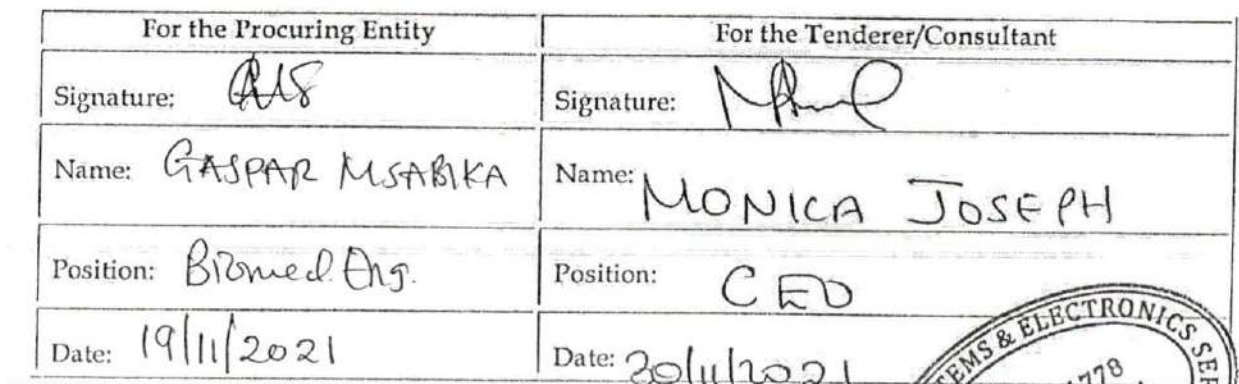 For the Procuring Entity For the Tenderer/Consultant
Signature: Signature:
Name: GASPAR MSABIKA Name: MONICA JOSEPH
Position: Biomed. Eng. Position: CEO
Date: 19/11/2021 Date: 30/11/2021
TEMS & ELECTRONICS SER
1778